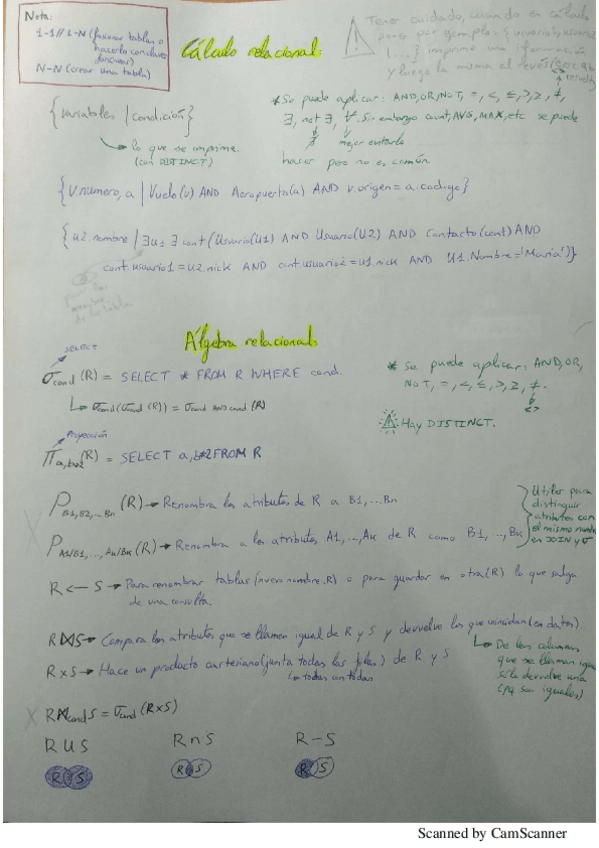 Nota:
1-1 // 1-N (fusionar tablas o
hacerlo con claves
N-N (crear una tabla)
Cálculo relacional:
Tener cuidado, cuando en cálculo
pones por ejemplo: {usuario1, usuario2
|...} imprime una información
y luego la misma al revés
{variables | condición}
lo que se imprime.
(con DISTINCT)
* Se puede aplicar: AND, OR, NOT, =, <, ≤, >, ≥, ≠,
∃, not ∃, ∀. Sin embargo count, AVG, MAX, etc se puede
mejor evitarlo
hacer pero no es común.
{V.numero, a | Vuelo(v) AND Aeropuerto(a) AND v.origen = a.codigo}
{u2.nombre | ∃u1 ∃cont (Usuario(u1) AND Usuario(u2) AND Contacto(cont) AND
cont.usuario1 = u2.nick AND cont.usuario2 = u1.nick AND U1.Nombre = 'María')}
de la tabla
Álgebra relacional:
SELECT
σcond (R) = SELECT * FROM R WHERE cond.
σcond(σcond (R)) = σcond AND cond (R)
* Se puede aplicar: AND, OR,
NOT, =, <, ≤, >, ≥, ≠.
<>
Hay DISTINCT.
Proyección
Πa,b*2(R) = SELECT a, b*2 FROM R
ρB1,B2,...Bn (R) → Renombra los atributos de R a B1,...Bn
ρA1/B1,...,Ak/Bk (R) → Renombra a los atributos A1,...,Ak de R como B1,...,Bk
Útiles para
distinguir
atributos con
el mismo nombre
en JOIN y σ
R ← S → Para renombrar tablas (nuevo nombre.R) o para guardar en otra (R) lo que salga
de una consulta.
R⋈S → Compara los atributos que se llamen igual de R y S y devuelve los que coincidan (en datos).
De las columnas
que se llaman igual
sólo devuelve una
(pq son iguales)
R×S → Hace un producto cartesiano (junta todas las filas) de R y S
todas con todas
R⋈cond S = σcond (R×S)
R∪S R∩S R-S
R S R S R S
Scanned by CamScanner